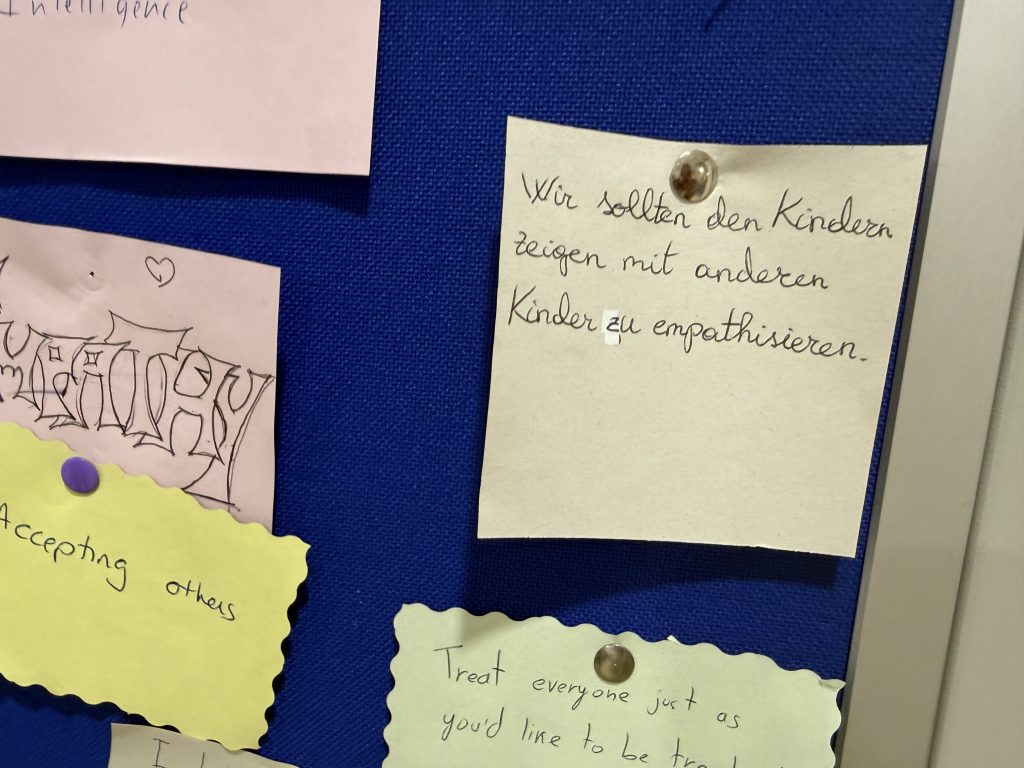 Intelligence
Wir sollten den Kindern
zeigen mit anderen
Kinder zu empathisieren.
Accepting others
Treat everyone just as
you'd like to be
I